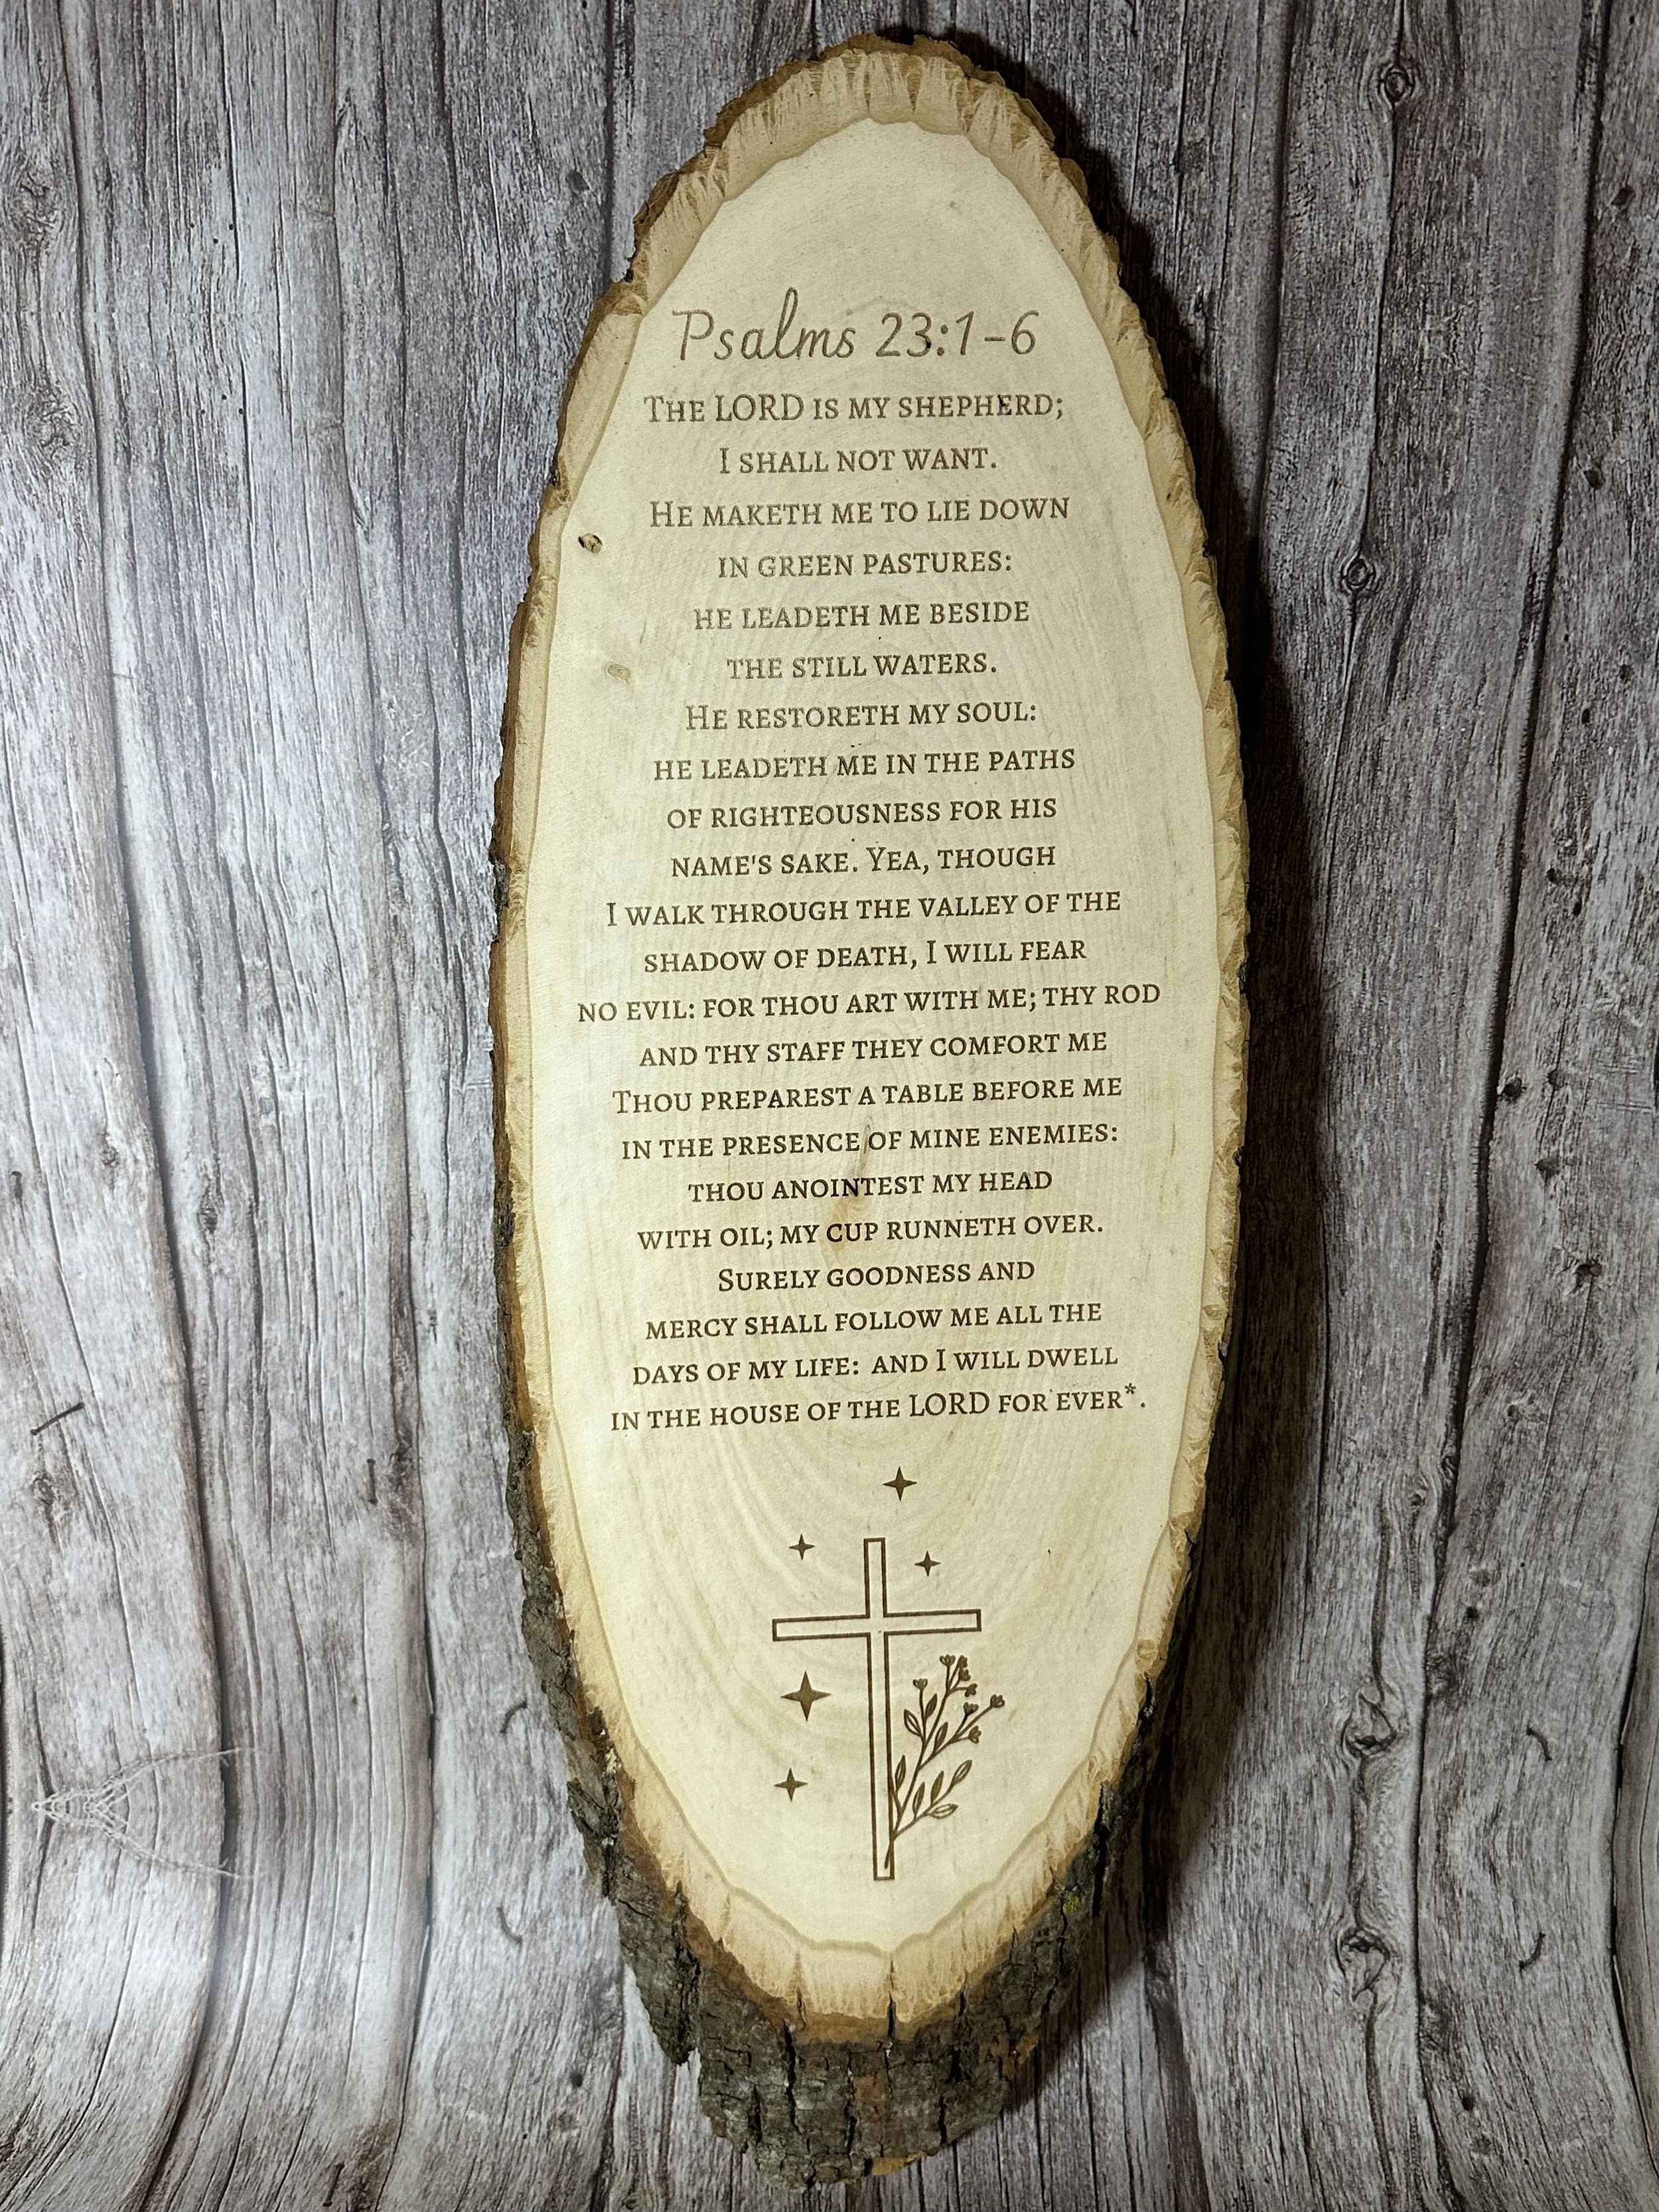 Psalms 23:1-6
The LORD is my shepherd;
I shall not want.
He maketh me to lie down
in green pastures:
he leadeth me beside
the still waters.
He restoreth my soul:
he leadeth me in the paths
of righteousness for his
name's sake. Yea, though
I walk through the valley of the
shadow of death, I will fear
no evil: for thou art with me; thy rod
and thy staff they comfort me
Thou preparest a table before me
in the presence of mine enemies:
thou anointest my head
with oil; my cup runneth over.
Surely goodness and
mercy shall follow me all the
days of my life: and I will dwell
in the house of the LORD for ever*.